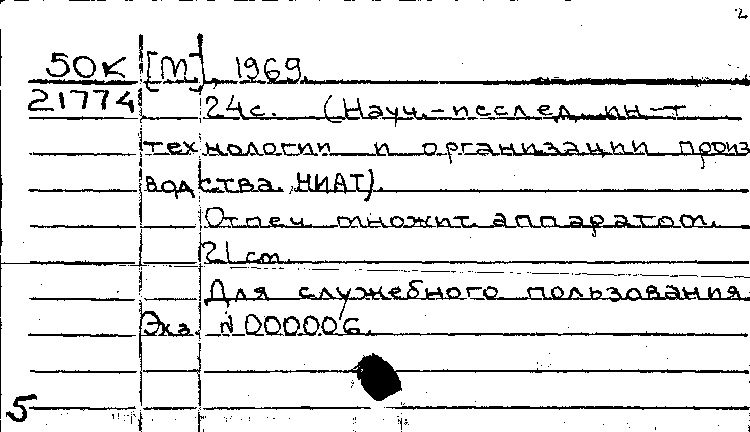 2
50К [М], 1969.
21774 24с. (Науч.-исслед. ин-т
технологии и организации произ
водства. НИАТ).
Отпеч. множит. аппаратом.
21 см.
Для служебного пользования
Экз. N 000006.
5